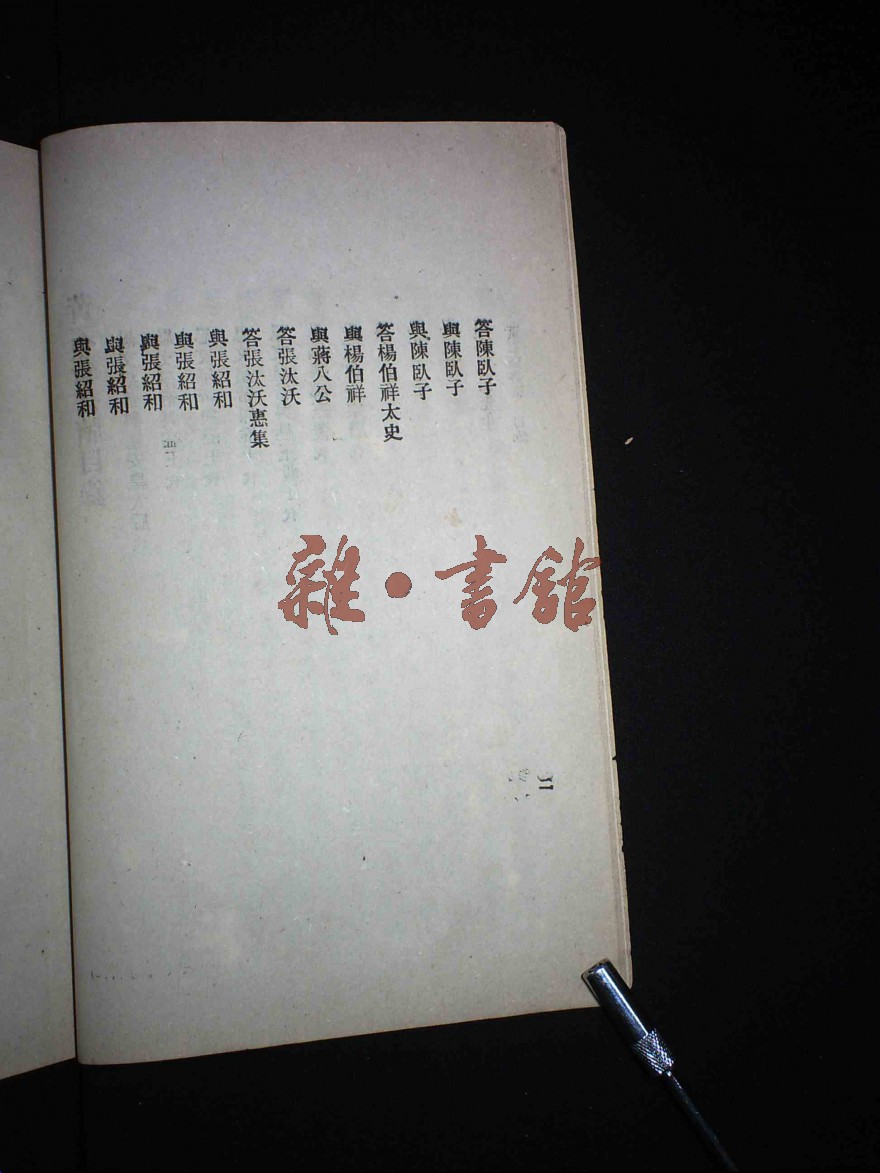 答陳臥子
與陳臥子
與陳臥子
答楊伯祥太史
與楊伯祥
與蔣八公
答張汰沃
答張汰沃惠集
與張紹和
與張紹和
與張紹和
與張紹和
與張紹和
雜·書館